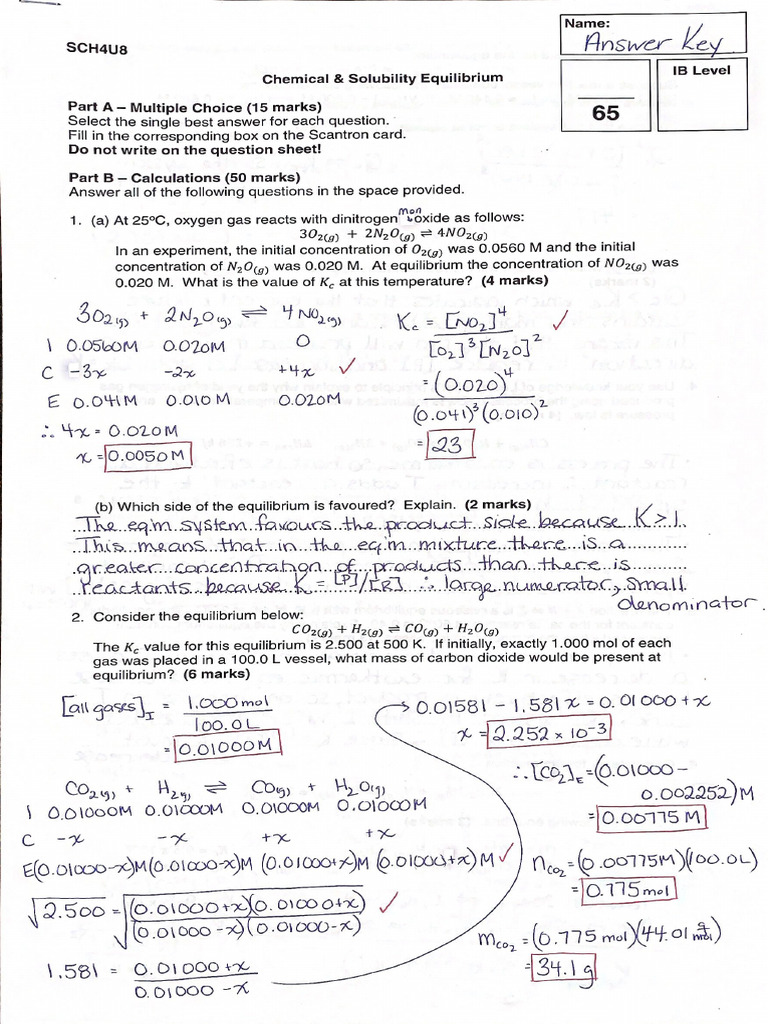 SCH4U8
Name:
Answer Key
65
IB Level
Chemical & Solubility Equilibrium
Part A – Multiple Choice (15 marks)
Select the single best answer for each question.
Fill in the corresponding box on the Scantron card.
Do not write on the question sheet!
Part B – Calculations (50 marks)
Answer all of the following questions in the space provided.
1. (a) At 25ºC, oxygen gas reacts with dinitrogen monoxide as follows:
3O₂(g) + 2N₂O(g) ⇌ 4NO₂(g)
In an experiment, the initial concentration of O₂(g) was 0.0560 M and the initial
concentration of N₂O(g) was 0.020 M. At equilibrium the concentration of NO₂(g) was
0.020 M. What is the value of Kc at this temperature? (4 marks)
3O₂(g) + 2N₂O(g) ⇌ 4NO₂(g)
I 0.0560M 0.020M 0
C -3x -2x +4x ✓
E 0.041M 0.010M 0.020M
∴ 4x = 0.020M
x = 0.0050M
Kc = [NO₂]⁴ ✓
[O₂]³[N₂O]²
= (0.020)⁴
(0.041)³(0.010)²
= 23
(b) Which side of the equilibrium is favoured? Explain. (2 marks)
The eq.m system favours the product side because K>1.
This means that in the eq.m mixture there is a
greater concentration of products than there is
reactants because K = [P]/[R] ∴ large numerator, small
denominator.
2. Consider the equilibrium below:
CO₂(g) + H₂(g) ⇌ CO(g) + H₂O(g)
The Kc value for this equilibrium is 2.500 at 500 K. If initially, exactly 1.000 mol of each
gas was placed in a 100.0 L vessel, what mass of carbon dioxide would be present at
equilibrium? (6 marks)
[all gases]I = 1.000mol
100.0L
= 0.01000M
CO₂(g) + H₂(g) ⇌ CO(g) + H₂O(g)
I 0.01000M 0.01000M 0.01000M 0.01000M
C -x -x +x +x
E (0.01000-x)M (0.01000-x)M (0.01000+x)M (0.01000+x)M ✓
√2.500 = √(0.01000+x)(0.01000+x) ✓
(0.01000-x)(0.01000-x)
1.581 = 0.01000+x
0.01000-x
→ 0.01581 - 1.581x = 0.01000+x
x = 2.252 x 10⁻³
∴ [CO₂]E = (0.01000-
0.002252)M
= 0.00775 M
nCO₂ = (0.00775M)(100.0L)
= 0.775mol
mCO₂ = (0.775 mol)(44.01 g/mol)
= 34.1 g